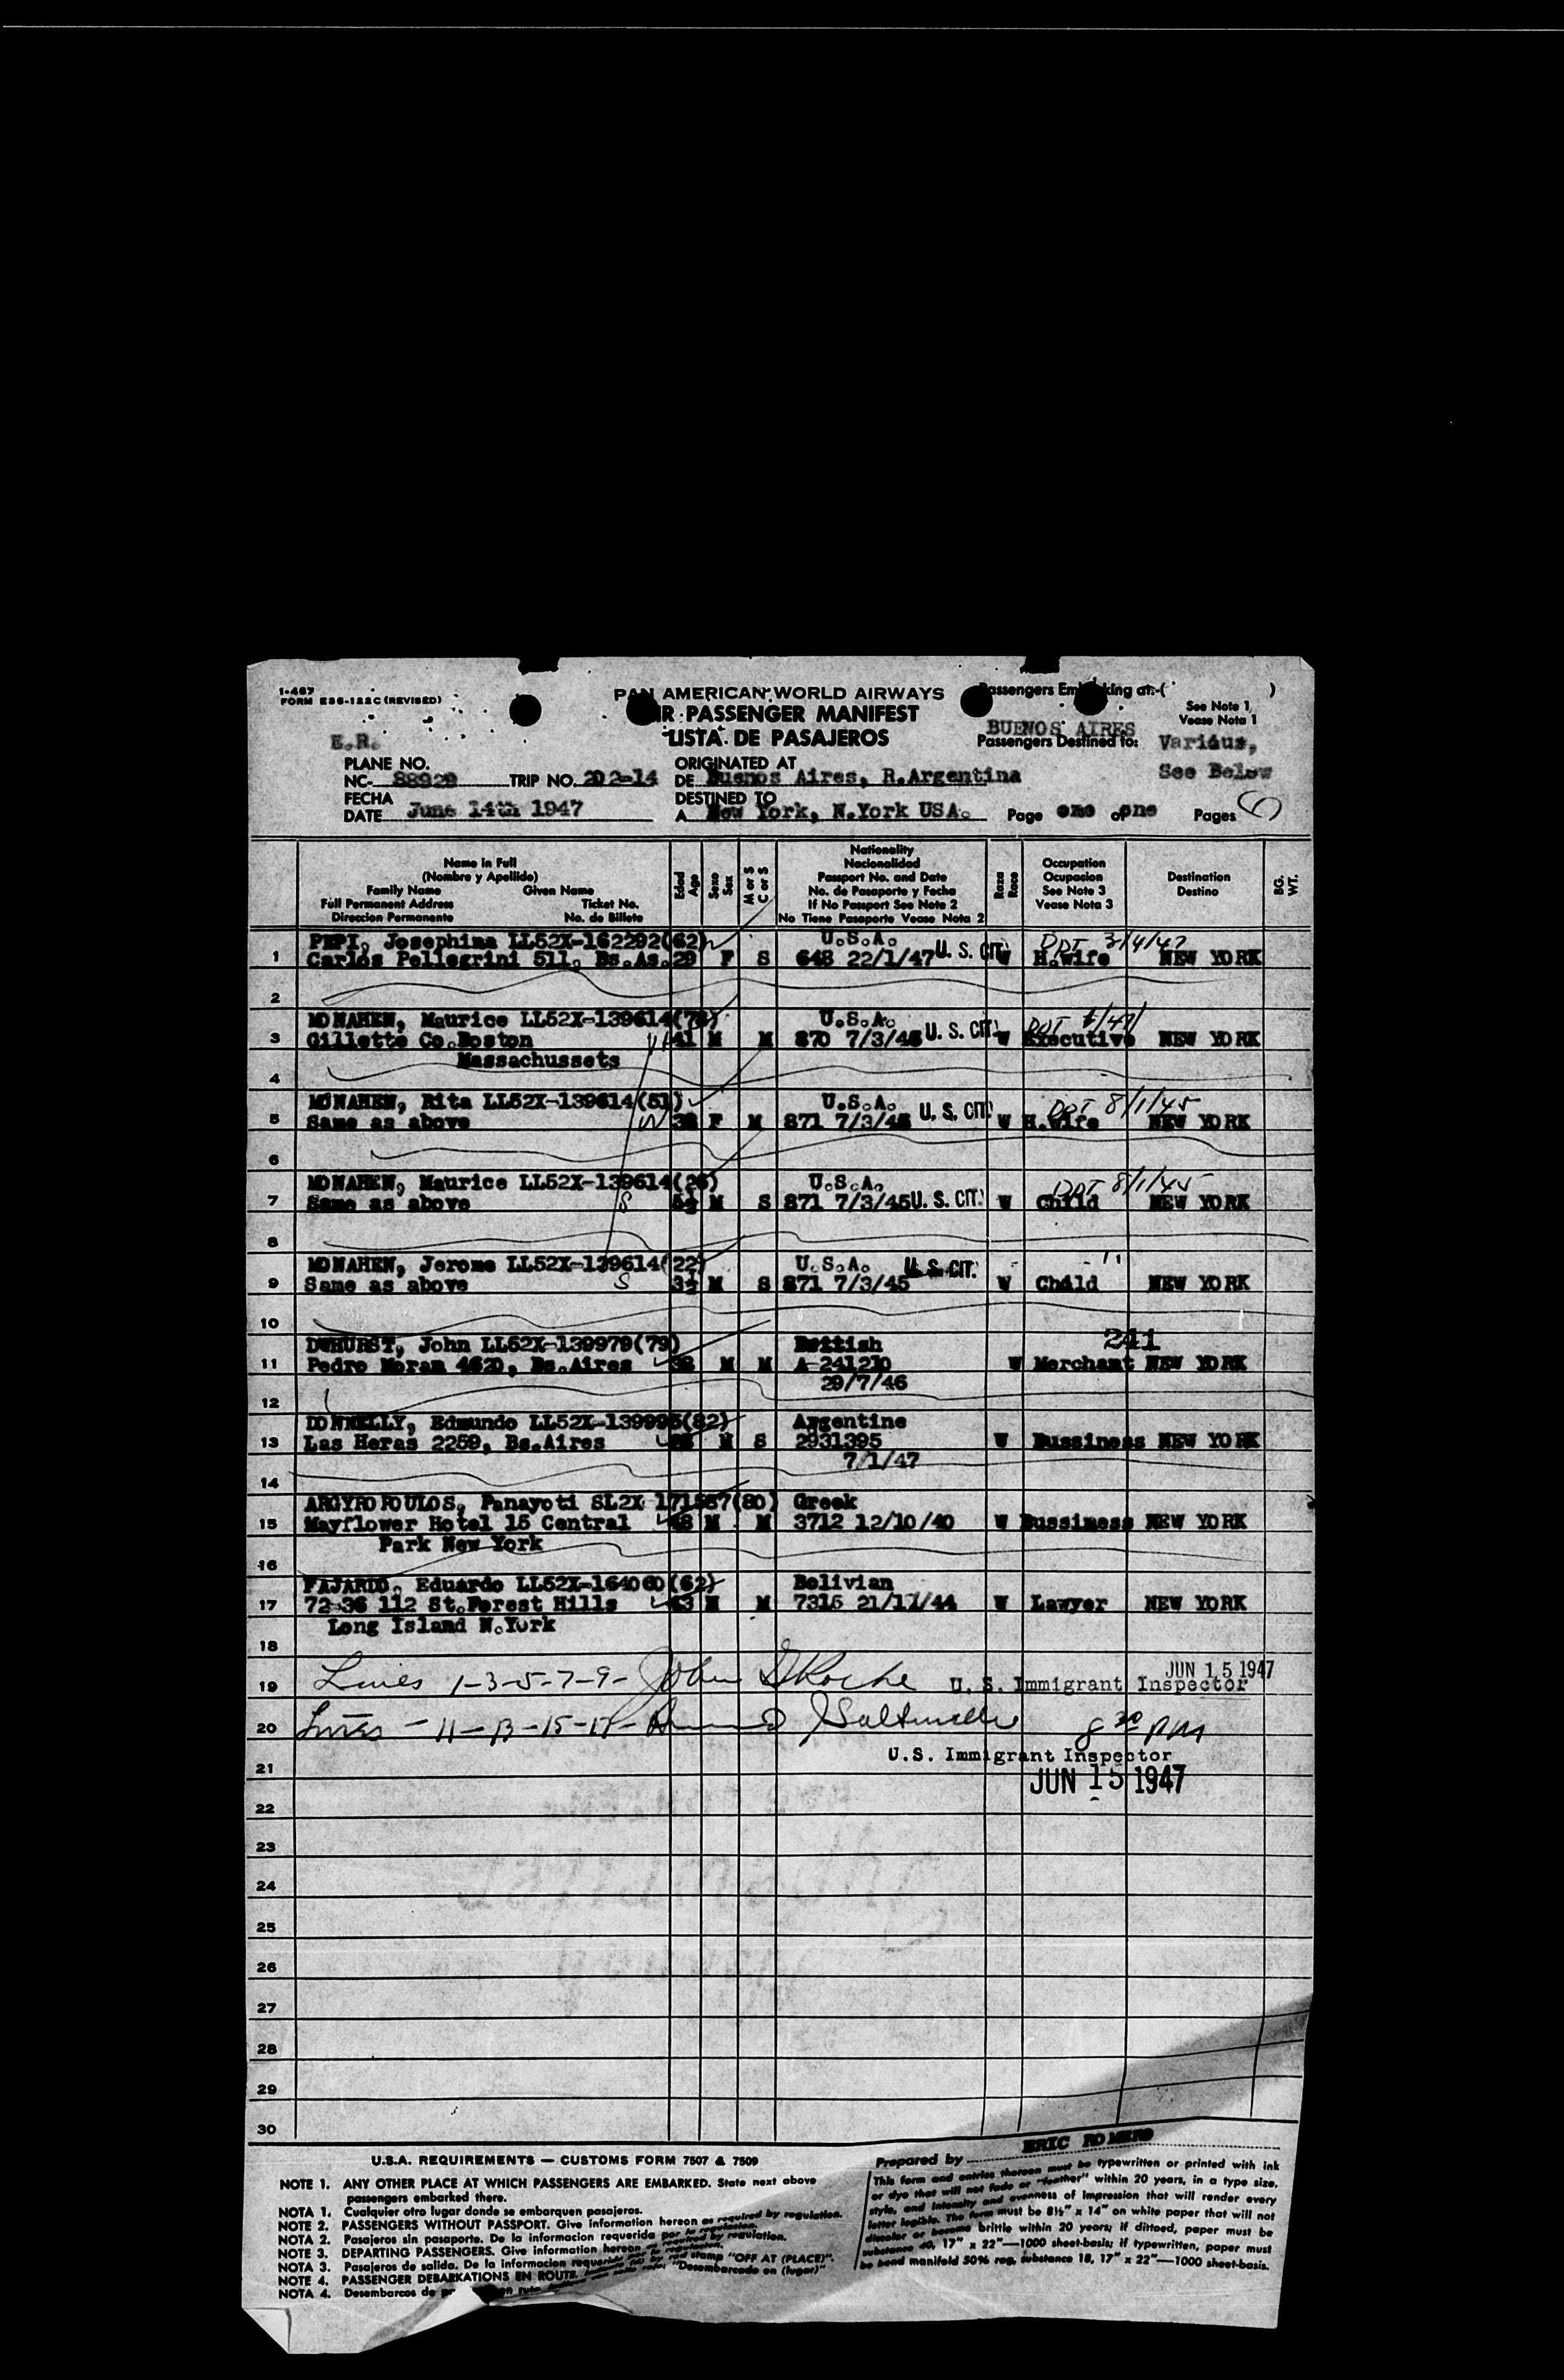 I-467
FORM E36-122C (REVISED)
PAN AMERICAN WORLD AIRWAYS
AIR PASSENGER MANIFEST
LISTA DE PASAJEROS
Passengers Embarking at:-( )
See Note 1
Vease Nota 1
BUENOS AIRES
Passengers Destined to:
Various,
See Below
E.R.
PLANE NO.
NC- 88929 TRIP NO. 202-14
ORIGINATED AT
DE Buenos Aires, R.Argentina
FECHA
DATE June 14th 1947
DESTINED TO
A New York, N.York USA.
Page one of one Pages
Name in Full
(Nombre y Apellido)
Family Name Given Name
Full Permanent Address Ticket No.
Direccion Permanente No. de Billete
Edad
Age
Sexo
Sex
M or S
C or S
Nationality
Nacionalidad
Passport No. and Date
No. de Pasaporte y Fecha
If No Passport See Note 2
No Tiene Pasaporte Vease Nota 2
Raza
Race
Occupation
Ocupacion
See Note 3
Vease Nota 3
Destination
Destino
BG.
WT.
PEPI, Josephina LL52X-162292(62) U.S.A. DDT 3/4/47
1 Carlos Pellegrini 511, Bs.As. 29 F S 648 22/1/47 U. S. CIT. W H.wife NEW YORK
2
MONAHEN, Maurice LL52X-139614(78) U.S.A.
3 Gillette Co.Boston 41 M M 870 7/3/45 U. S. CIT. W Executive NEW YORK
Massachussets
4
MONAHEN, Rita LL52X-139614(51) U.S.A. DDT 8/1/45
5 Same as above F M 871 7/3/45 U. S. CIT. W H.Wife NEW YORK
6
MONAHEN, Maurice LL52X-139614(26) U.S.A. DDT 8/1/45
7 Same as above S 5½ M S 871 7/3/45 U. S. CIT. W Child NEW YORK
8
MONAHEN, Jerome LL52X-139614(22) U.S.A. U. S. CIT. "
9 Same as above S 3½ M S 871 7/3/45 W Child NEW YORK
10
DWHURST, John LL52X-139979(79) British 241
11 Pedro Moran 4620, Bs.Aires 38 M M A-241210 W Merchant NEW YORK
29/7/46
12
DONNELLY, Edmundo LL52X-139995(82) Argentine
13 Las Heras 2259, Bs.Aires M S 2931395 W Bussiness NEW YORK
7/1/47
14
ARGYROPOULOS, Panayoti SL2X 171587(80) Greek
15 Mayflower Hotel 15 Central 48 M M 3712 12/10/40 W Bussiness NEW YORK
Park New York
16
FAJARDO, Eduardo LL52X-164060(62) Bolivian
17 72-36 112 St.Forest Hills 43 M M 7315 21/11/44 W Lawyer NEW YORK
Long Island N.York
18
19 Lines 1-3-5-7-9- John Roche U. S. Immigrant Inspector JUN 15 1947
20 Lines - 11-13-15-17- 8 30 PM
U.S. Immigrant Inspector
21
JUN 15 1947
22
23
24
25
26
27
28
29
30
U.S.A. REQUIREMENTS — CUSTOMS FORM 7507 & 7509
NOTE 1. ANY OTHER PLACE AT WHICH PASSENGERS ARE EMBARKED. State next above
passengers embarked there.
NOTA 1. Cualquier otro lugar donde se embarquen pasajeros.
NOTE 2. PASSENGERS WITHOUT PASSPORT. Give information hereon as required by regulation.
NOTA 2. Pasajeros sin pasaporte. De la informacion requerida por la regulacion.
NOTE 3. DEPARTING PASSENGERS. Give information hereon as required by regulation.
NOTA 3. Pasajeros de salida. De la informacion requerida por la regulacion.
NOTE 4. PASSENGER DEBARKATIONS EN ROUTE. by red stamp "OFF AT (PLACE)".
NOTA 4. Desembarcos de en ruta "Desembarcado en (lugar)"
Prepared by ERIC ROMERO
This form and entries thereon must be typewritten or printed with ink
or dye that will not fade or "feather" within 20 years, in a type size,
style, and intensity and evenness of impression that will render every
letter legible. The form must be 8½" x 14" on white paper that will not
discolor or become brittle within 20 years; if dittoed, paper must be
substance 40, 17" x 22"—1000 sheet-basis; if typewritten, paper must
be bond manifold 50% rag, substance 18, 17" x 22"—1000 sheet-basis.